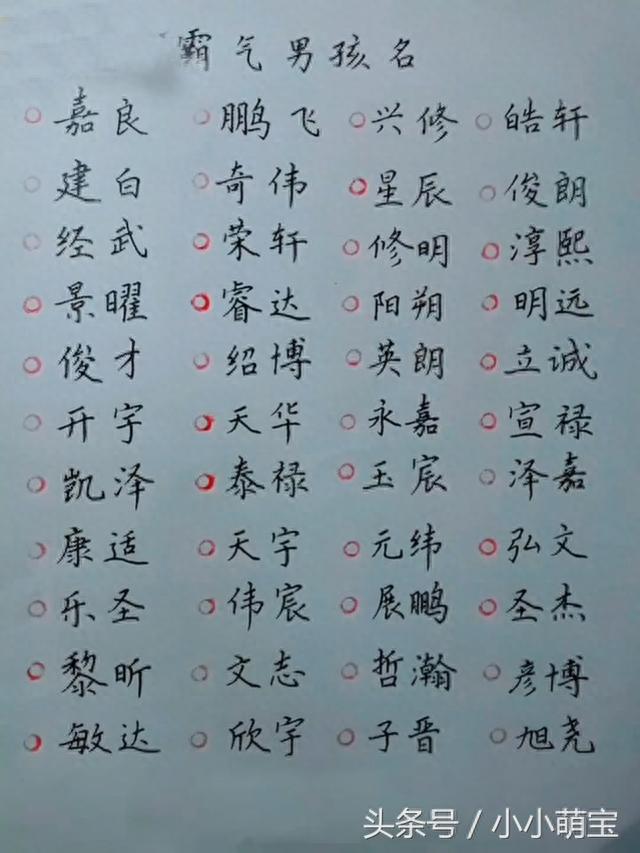 霸气男孩名
嘉良 鹏飞 兴修 皓轩
建白 奇伟 星辰 俊朗
经武 荣轩 修明 淳熙
景曜 睿达 阳朔 明远
俊才 绍博 英朗 立诚
开宇 天华 永嘉 宣禄
凯泽 泰禄 玉宸 泽嘉
康适 天宇 元纬 弘文
乐圣 伟宸 展鹏 圣杰
黎昕 文志 哲瀚 彦博
敏达 欣宇 子晋 旭尧
头条号 / 小小萌宝